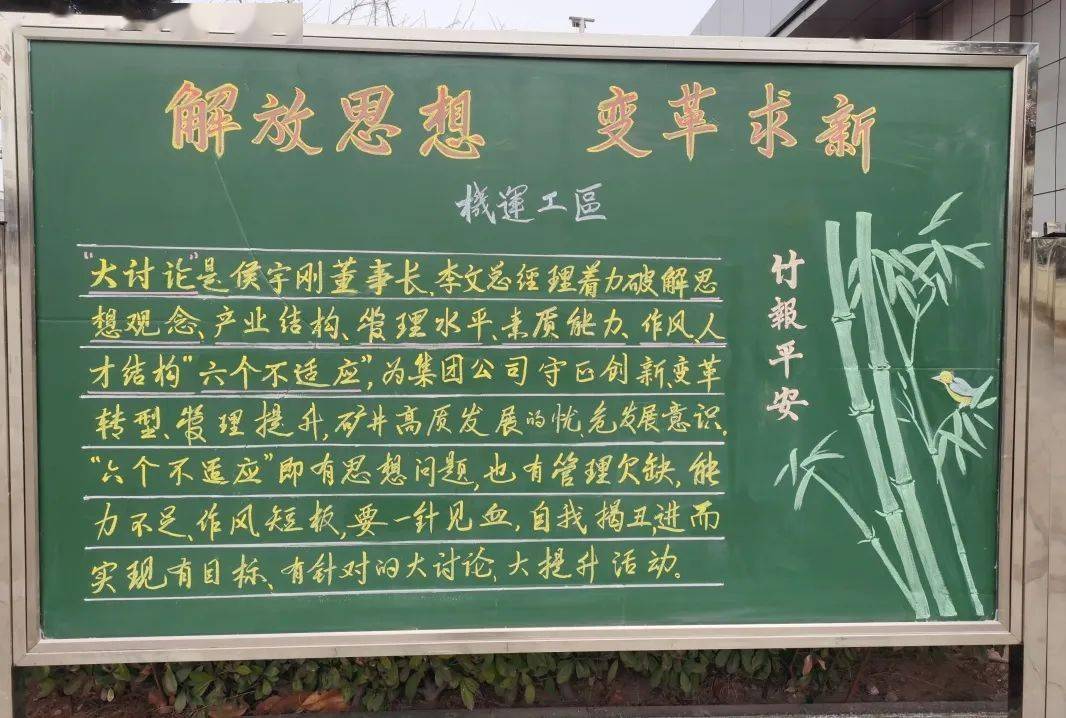 解放思想 变革求新
機運工區
“大讨论”是侯宇刚董事长、李文总经理着力破解思
想观念、产业结构、管理水平、素质能力、作风、人
才结构“六个不适应”，为集团公司守正创新、变革
转型、管理提升，矿井高质发展的忧、危发展意识。
“六个不适应”即有思想问题，也有管理欠缺，能
力不足、作风短板，要一针见血，自我揭丑，进而
实现有目标、有针对的大讨论、大提升活动。
竹報平安